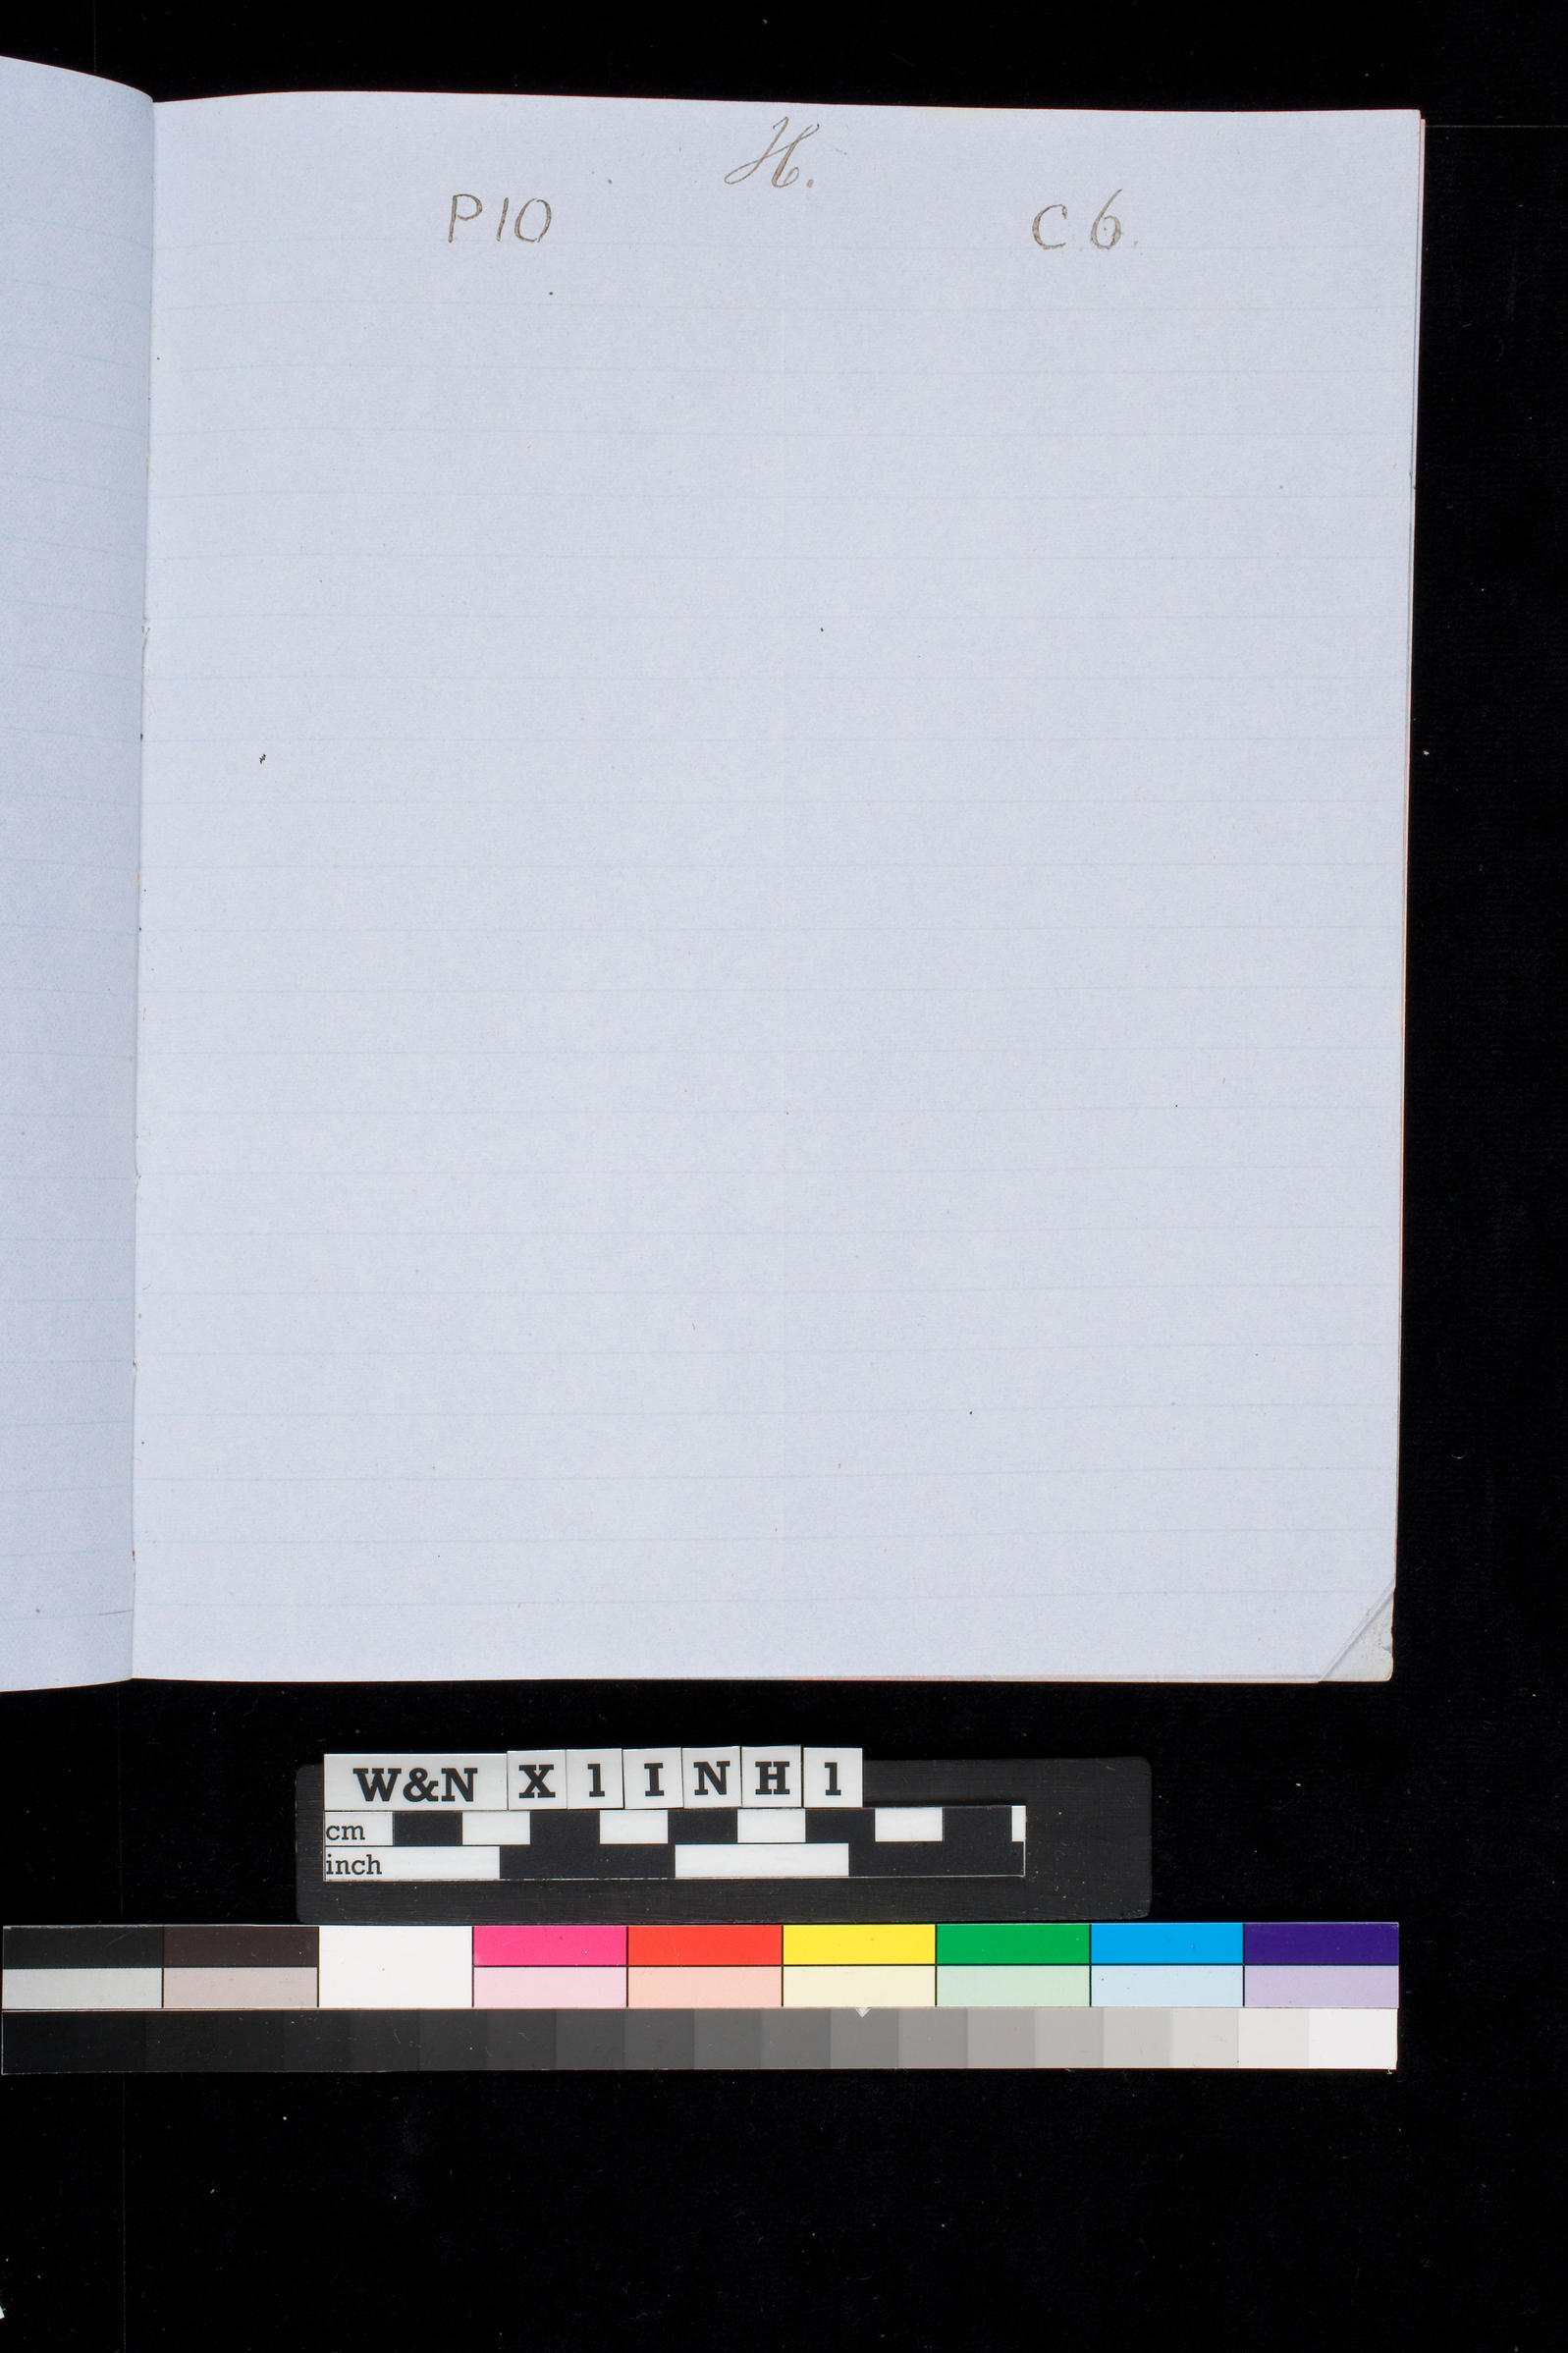 H.
P10 C6
W&N X1INH1
cm
inch